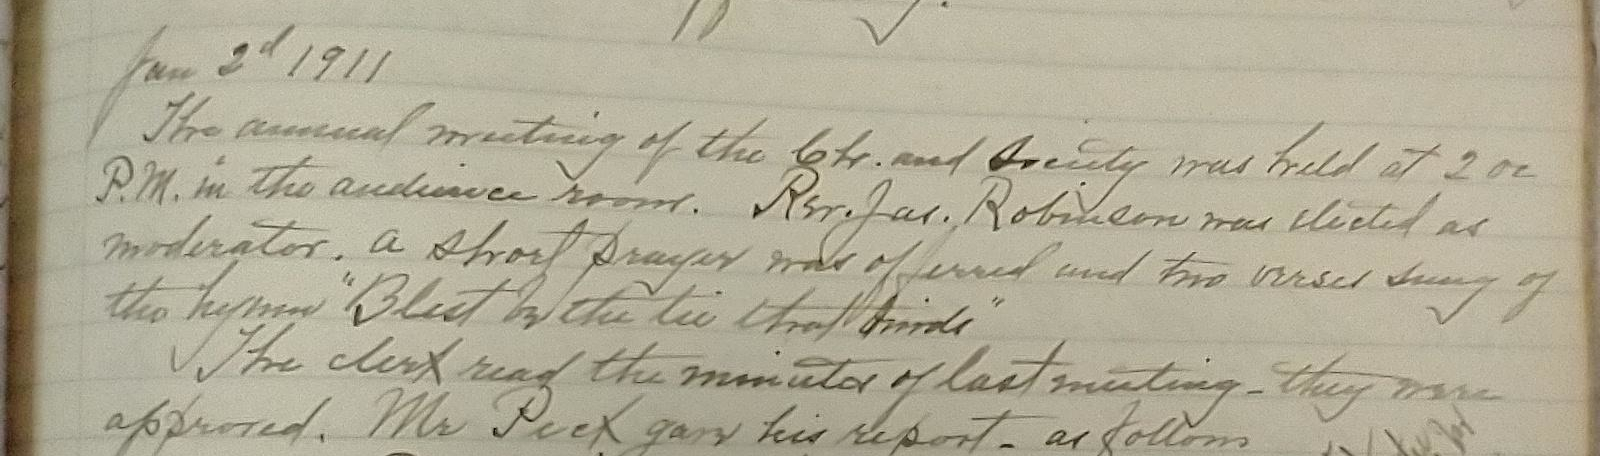 Jan 2d 1911
The annual meeting of the Ch. and Society was held at 2 oc
P.M. in the audience room. Rev. Jas. Robinson was elected as
moderator. A short prayer was offered and two verses sung of
the hymn "Blest be the tie that binds"
The clerk read the minutes of last meeting - they were
approved. Mr Peck gave his report - as follows